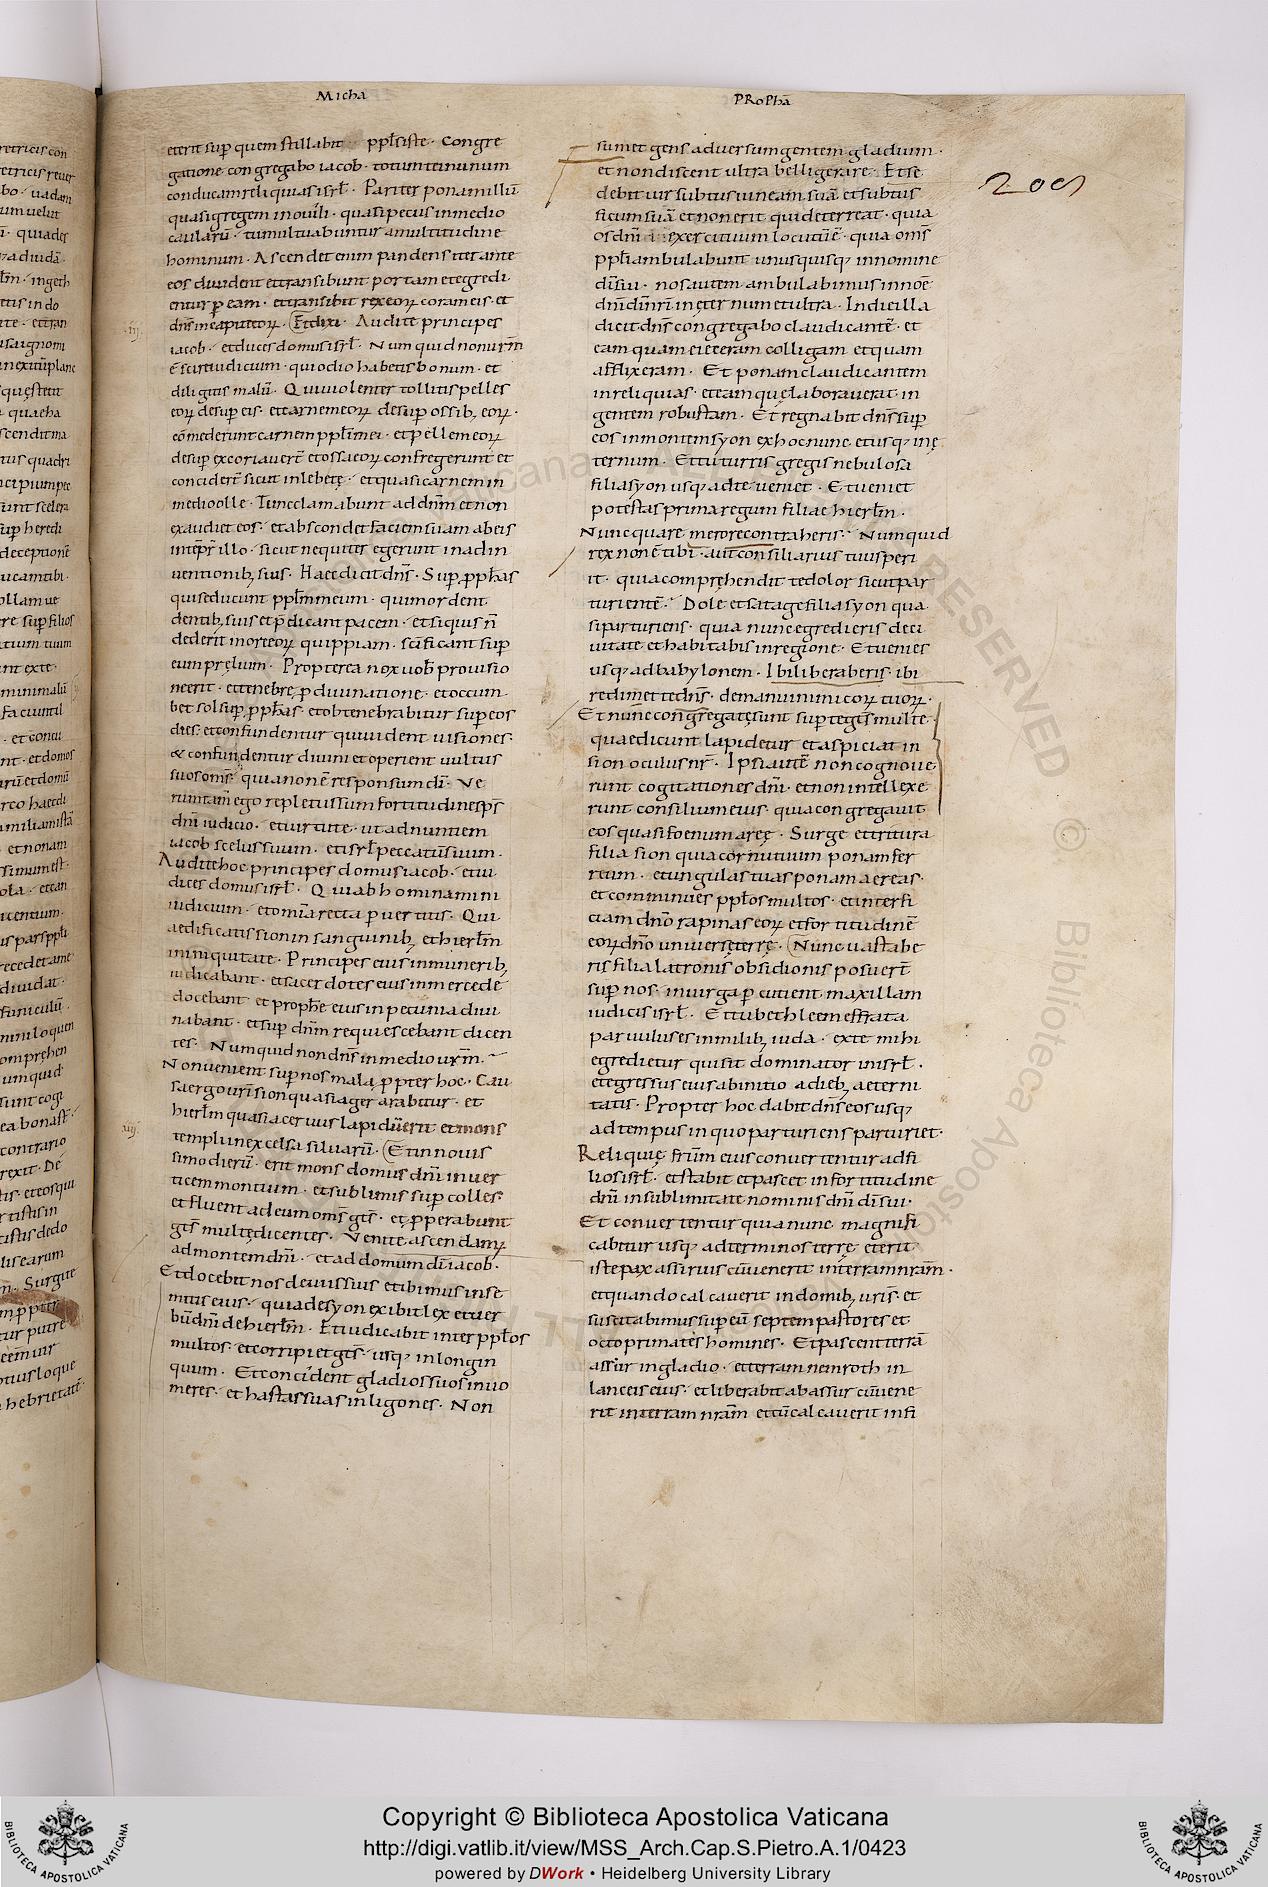 Micha
eterit sup̄ quem stillabit ppl̄s iste · Congre
gatione congregabo iacob · totum te in unum
conducam reliquias isrl̄ · Pariter ponam illū
quasi gregem in ovili · quasi pecus in medio
caularū · tumultuabuntur a multitudine
hominum · Ascendet enim pandens iter ante
eos divident et transibunt portam et egredi
entur ꝑ eam · et transibit rex eoꝝ coram eis · et
dn̄s in capite eoꝝ · Et dixi · Audite principes
iacob · et duces domus isrl̄ · Numquid non urm̄
ē scire iudicium · qui odio habetis bonum · et
diligitis malū · Qui violenter tollitis pelles
eoꝝ desup̄ eis · et carnem eoꝝ desup̄ ossib; eoꝝ ·
cōmederunt carnem ppl̄i mei · et pellem eoꝝ
desup̄ excoriavert̄ et ossa eoꝝ confregerunt et
concidert̄ sicut in lebete · et quasi carnem in
medio olle · Tunc clamabunt ad dn̄m et non
exaudiet eos · et abscondet faciem suam ab eis
in tempr̄ illo · sicut nequiter egerunt in adin
ventionib; suis · Haec dicit dn̄s · Sup̄ ꝓphās
qui seducunt ppl̄m meum · qui mordent
dentib; suis et p̄dicant pacem · et si quis n̄
dederit in ore eoꝝ quippiam · scīficant sup̄
eum pręlium · Propterea nox vob̄ pro visio
ne erit · et tenebre ꝓ divinatione · et occum
bet sol sup̄ ꝓphās · et obtenebrabitur sup̄ eos
dies · et confundentur qui vident visiones ·
& confundentur divini et operient vultus
suos oms̄ · quia non ē responsum dī · Ve
rumtam̄ ego repletus sum fortitudine sps̄
dn̄i iudicio · et virtute · ut adnuntiem
iacob scelus suum · et isrl̄ peccatū suum ·
Audite hoc principes domus iacob · et iu
dices domus isrl̄ · Qui abhominamini
iudicium · et omnia recta pervertitis · Qui
aedificatis sion in sanguinib; et hierlm̄
in iniquitate · Principes eius in munerib;
iudicabant · et sacerdotes eius in mercede
docebant et prophe eius in pecunia divi
nabant · et sup̄ dn̄m requiescebant dicen
tes · Numquid non dn̄s in medio urm̄ ·
Non venient sup̄ nos mala ꝓpter hoc · Cau
sa ergo urī sion quasi ager arabitur · et
hierlm̄ quasi acervus lapidū erit et mons
templi in excelsa silvarū · Et in novis
simo dierū · erit mons domus dn̄i in ver
ticem montium · et sublimis sup̄ colles ·
et fluent ad eum oms̄ gts̄ · et ꝓperabunt
gts̄ multę dicentes · Venite ascendamꝝ
ad montem dn̄i · et ad domum dī iacob ·
Et docebit nos de viis suis et ibimus in se
mitis eius · quia de syon exibit lex et ver
bū dn̄i de hierlm̄ · Et iudicabit inter ppl̄os
multos · et corripiet gts̄ · usq; in longin
quum · Et concident gladios suos in vo
meres · et hastas suas in ligones · Non
PRoPhā
209
sumet gens adversum gentem gladium ·
et non discent ultra belligerare · Et se
debit vir subtus vineam suā et subtus
ficum suā et non erit qui deterreat · quia
os dn̄i exercituum locutū ē · quia oms̄
ppl̄i ambulabunt unusquisq; in nomine
dī sui · nos autem ambulabimus in noē
dn̄i dī nr̄i in eternum et ultra · In die illa
dicit dn̄s congregabo claudicantē · et
eam quam eieceram colligam et quam
afflixeram · Et ponam claudicantem
in reliquias · et eam quę laboraverat · in
gentem robustam · Et regnabit dn̄s sup̄
eos in monte syon ex hoc nunc et usq; in ę
ternum · Et tu turris gregis nebulosa
filia syon usq; ad te veniet · Et veniet
potestas prima regnum filiae hierlm̄ ·
Nunc quare merore contraheris · Numquid
rex non ē tibi · aut consiliarius tuus peri
it · quia comprehendit te dolor sicut par
turientē · Dole et satage filia syon qua
si parturiens · quia nunc egredieris de ci
vitate et habitabis in regione · Et venies
usq; ad babylonem · Ibi liberaberis · ibi
redimet te dn̄s · de manu inimicoꝝ tuoꝝ ·
Et nunc congregatę sunt sup̄ te gts̄ multe ·
quae dicunt lapidetur et aspiciat in
sion oculus nr̄ · Ipsi autē non cognove
runt cogitationes dn̄i · et non intellexe
runt consilium eius · quia congregavit
eos quasi foenum areę · Surge et tritura
filia sion quia cornu tuum ponam fer
reum · et ungulas tuas ponam aereas ·
et comminues ppl̄os multos · et interfi
ciam dn̄o rapinas eoꝝ et fortitudinē
eoꝝ dn̄o universę terrę · Nunc vastabe
ris filia latronis obsidionis posuert̄
sup̄ nos · in virga percutient maxillam
iudicis isrl̄ · Et tu bethleem effrata
parvulus es in milib; iuda · ex te mihi
egredietur qui sit dominator in isrl̄ ·
et egressus eius ab initio a dieb; aeterni
tatis · Propter hoc dabit dn̄s eos usq;
ad tempus in quo parturiens parturiet ·
Reliquię frūm eius convertentur ad fi
lios isrl̄ · et stabit et pascet in fortitudine
dn̄i in sublimitate nominis dn̄i dī sui ·
Et convertentur quia nunc magnifi
cabitur usq; ad terminos terrę et erit
iste pax assirius cū venerit in terram nram̄ ·
et quando calcaverit in domib; uris̄ · et
suscitabimus sup̄ eū septem pastores et
octo primates homines · Et pascent terrā
assur in gladio · et terram nemroth in
lanceis eius · et liberabit ab assur cū vene
rit in terram nram̄ et cū calcaverit in fi
Copyright © Biblioteca Apostolica Vaticana
http://digi.vatlib.it/view/MSS_Arch.Cap.S.Pietro.A.1/0423
powered by DWork • Heidelberg University Library